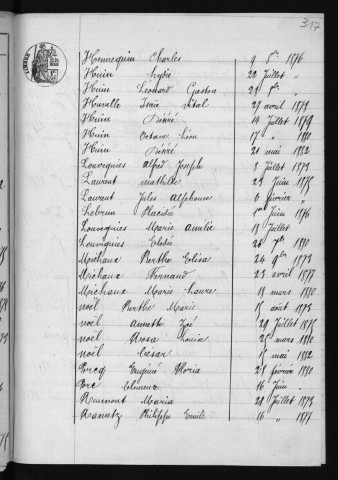 317
Hennequin Charles 9 1876
Huin Lydie 22 Juillet "
Huin Léonard Gaston 23 "
Huvelle Isaïe Vital 27 avril 1879
Huin Désiré 19 Juillet 1879
Huin Octave Léon 17 " 1880
Huin Désiré 21 mai 1882
Louvegnies Alfred Joseph 3 Juillet 1873
Laurent Mathilde 23 Juin 1875
Laurent Jules Alphonse 6 février "
Lebrun Placide Juin 1876
Louvegnies Marie Amélie 18 Juillet
Louvignies Elodie 26 7bre 1880
Michaux Berthe Elisa 24 9bre 1873
Michaux Fernand 23 avril 1877
Michaux Marie Laure 18 mars 1880
noël Berthe Marie 15 août 1873
noël Annette Zoé 29 Juillet 1875
noël Rosa Louisa 25 mars 1880
noël César 15 mai 1882
Porcq Eugénie Floria 23 février 1880
16 Juin
Reumont Maria 28 Juillet 1873
Philippe Emile 16 " 1877